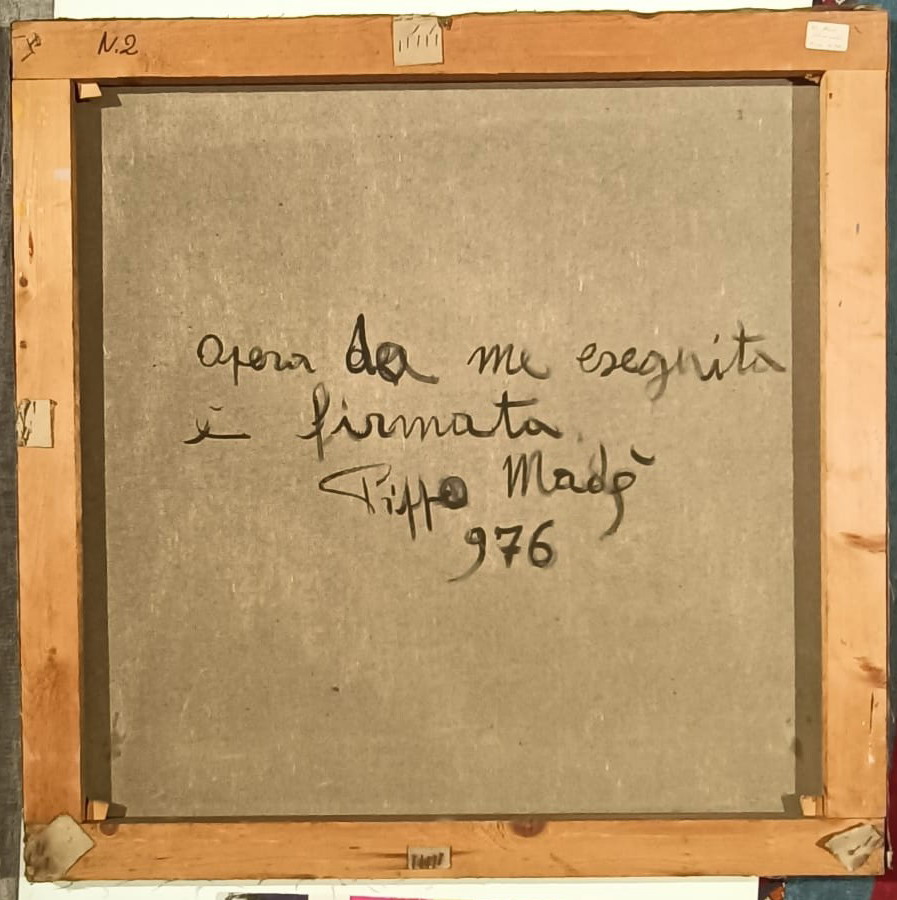 N.2
opera da me eseguita
è firmata.
Pippo Madè
976